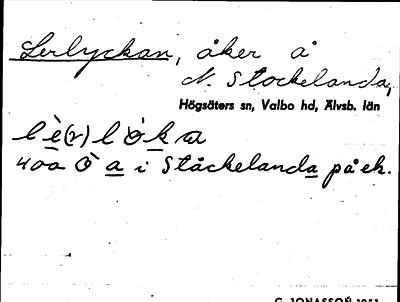 Lerlyckan, åker å
N. Stockelanda,
Högsäters sn, Valbo hd, Älvsb. län
lè(r)lòka
400 Ò a i Ståckelanda på ek.
G. JONASSON 1951